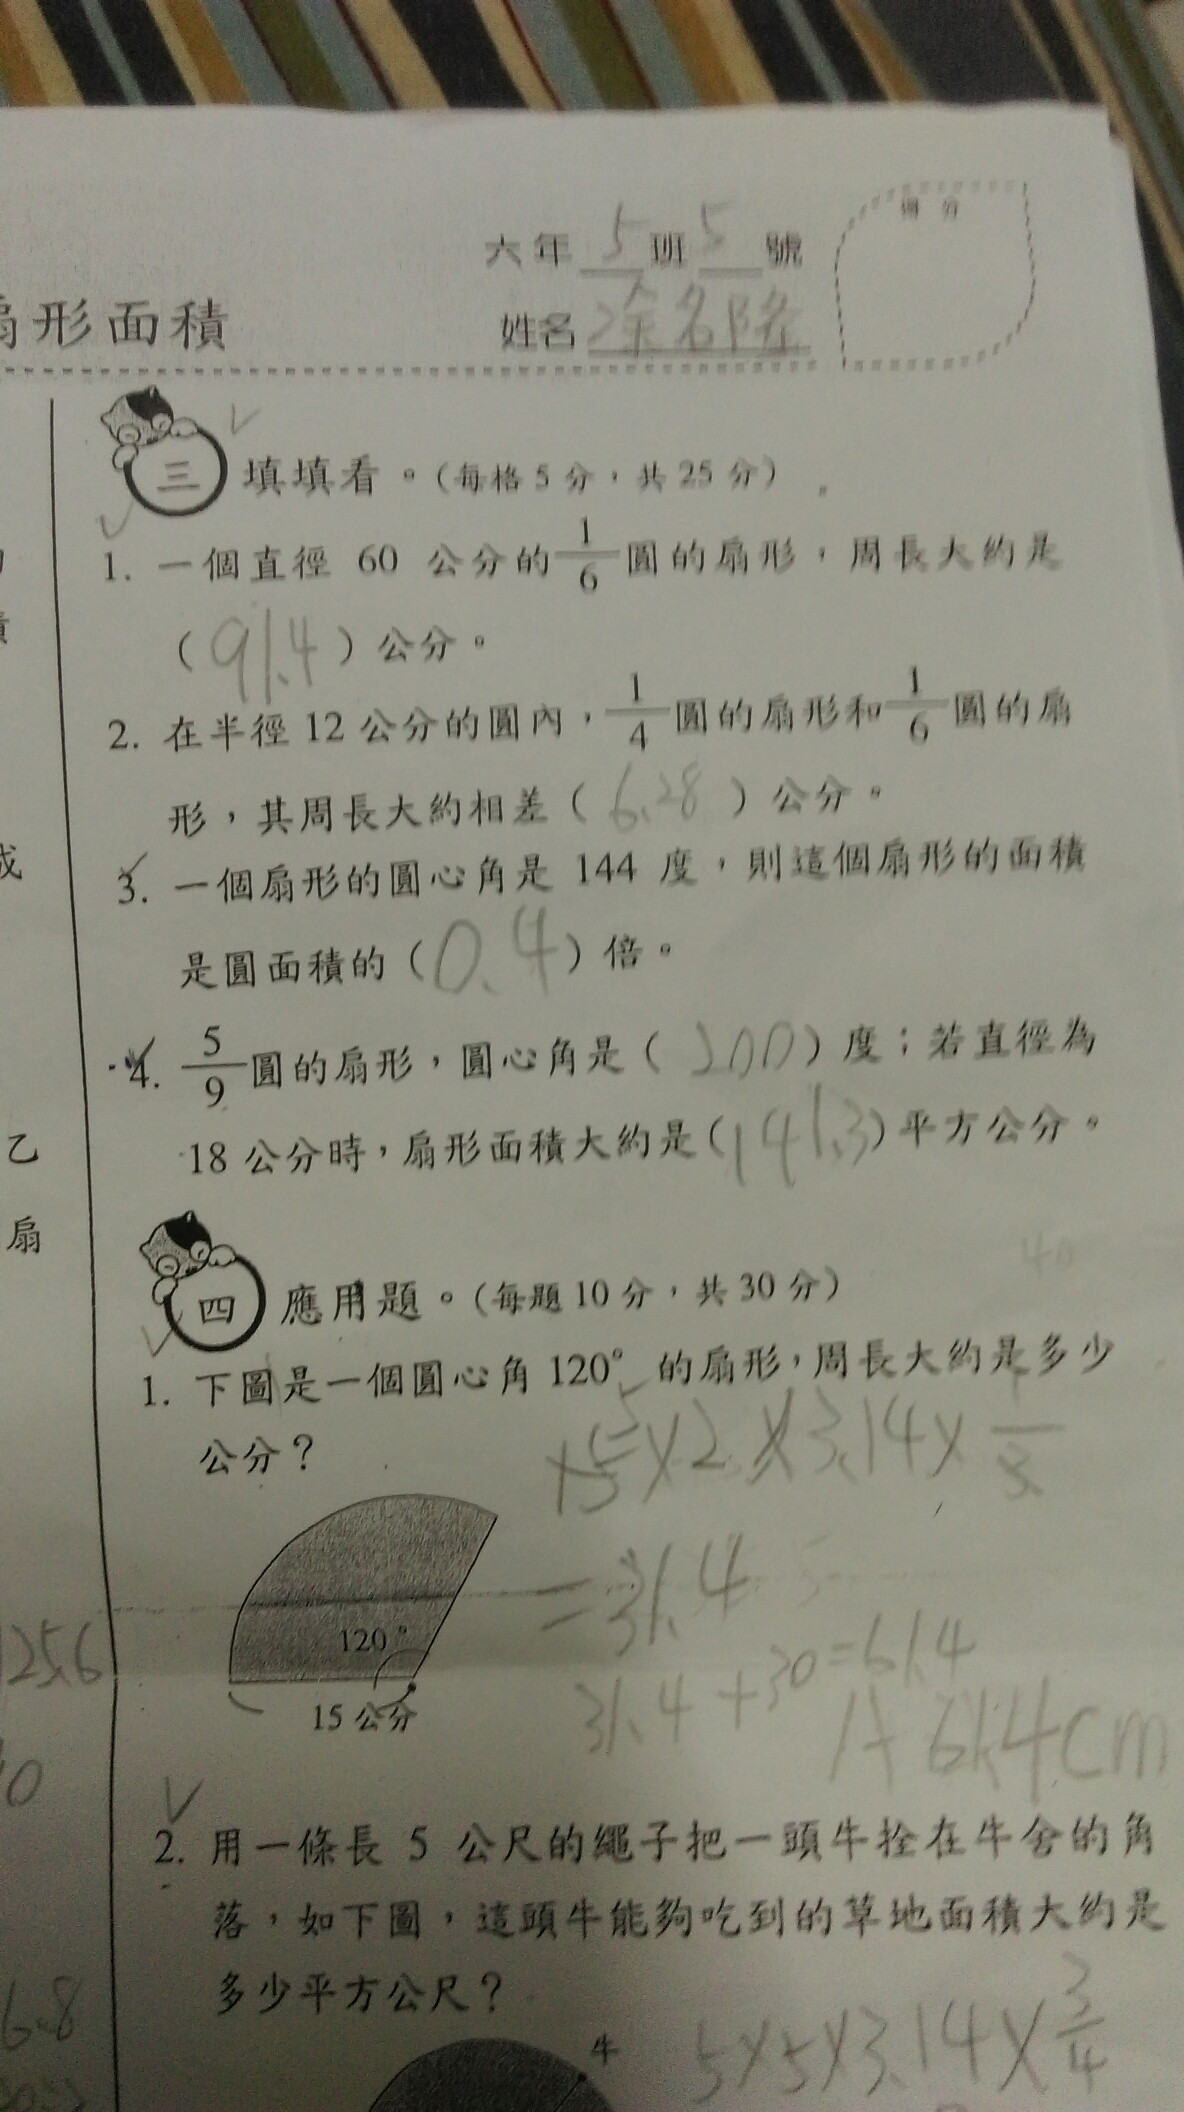 得分
六年 5 班 5 號
扇形面積
姓名 涂名隆
三 填填看。(每格5分，共25分)
1. 一個直徑 60 公分的 1/6 圓的扇形，周長大約是
(91.4) 公分。
2. 在半徑12公分的圓內，1/4 圓的扇形和 1/6 圓的扇
形，其周長大約相差(6.28)公分。
3. 一個扇形的圓心角是 144 度，則這個扇形的面積
是圓面積的(0.4)倍。
4. 5/9 圓的扇形，圓心角是(200)度；若直徑為
18公分時，扇形面積大約是(141.3)平方公分。
四 應用題。(每題10分，共30分)
1. 下圖是一個圓心角120°的扇形，周長大約是多少
公分？
15×2×3.14×1/3
=31.4
120°
31.4+30=61.4
15公分
A 61.4cm
2. 用一條長 5 公尺的繩子把一頭牛拴在牛舍的角
落，如下圖，這頭牛能夠吃到的草地面積大約是
多少平方公尺？
牛
5×5×3.14×3/4
乙
扇
6.8